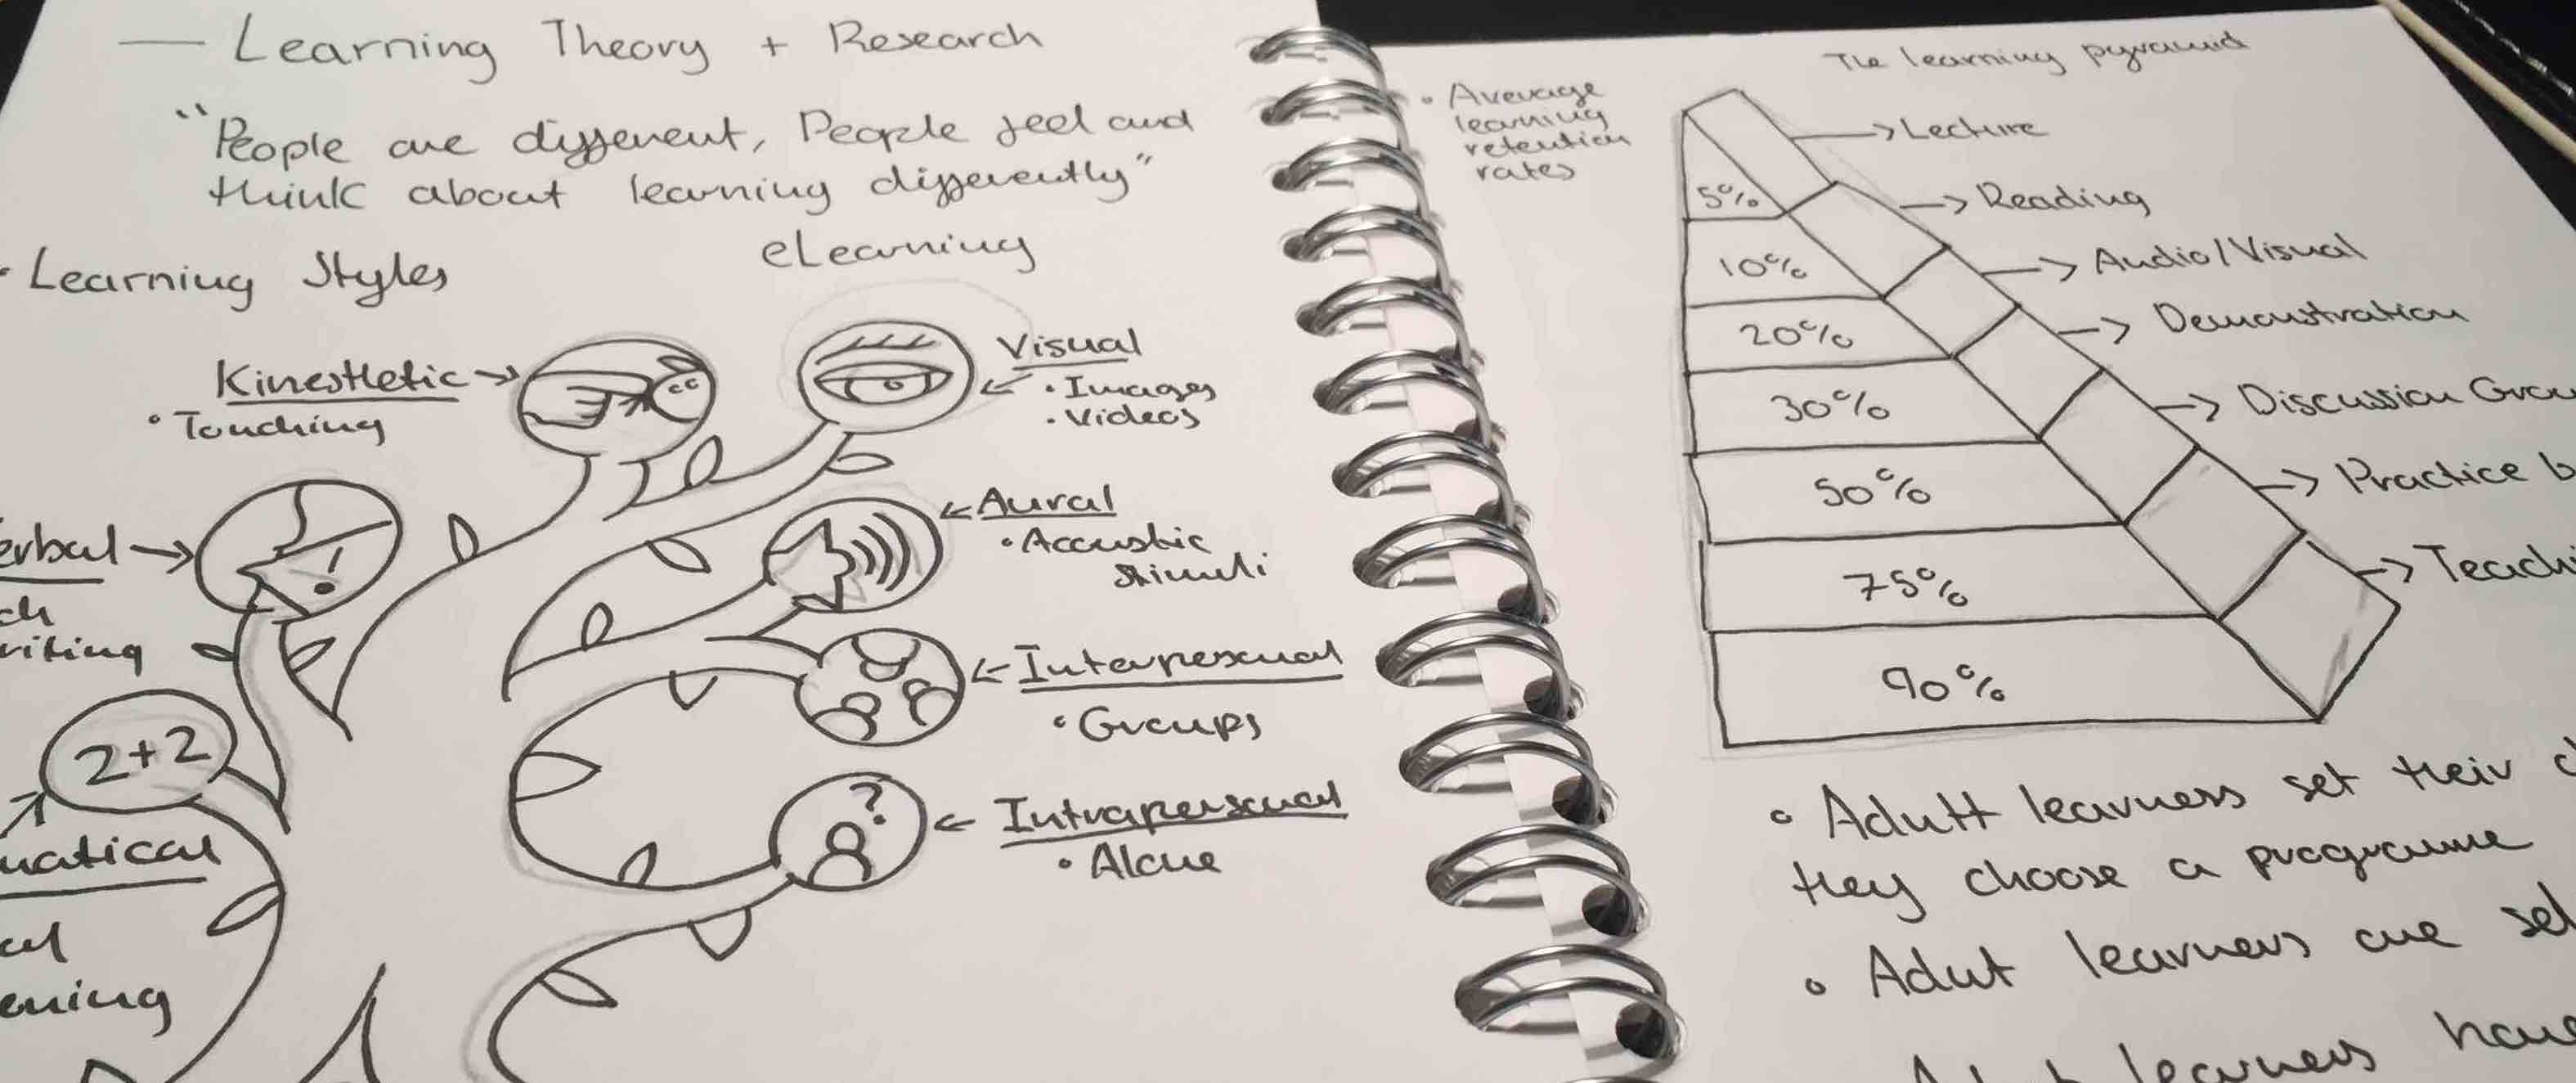 — Learning Theory + Research
"People are different, People feel and
think about learning differently"
eLearning
• Learning Styles
Kinesthetic →
• Touching
Visual
← • Images
• Videos
erbal →
ch
riting
← Aural
• Accustic
stimuli
← Interpersonal
• Groups
2+2
matical
al
ening
?
← Intrapersonal
• Alone
The learning pyramid
• Average
learning
retention
rates
→ Lecture
5%
→ Reading
10%
→ Audio/Visual
20%
→ Demonstration
30%
→ Discussion Grou
50%
→ Practice b
75%
→ Teachi
90%
• Adult learners set their
they choose a programme
• Adut learners are sel
learners have